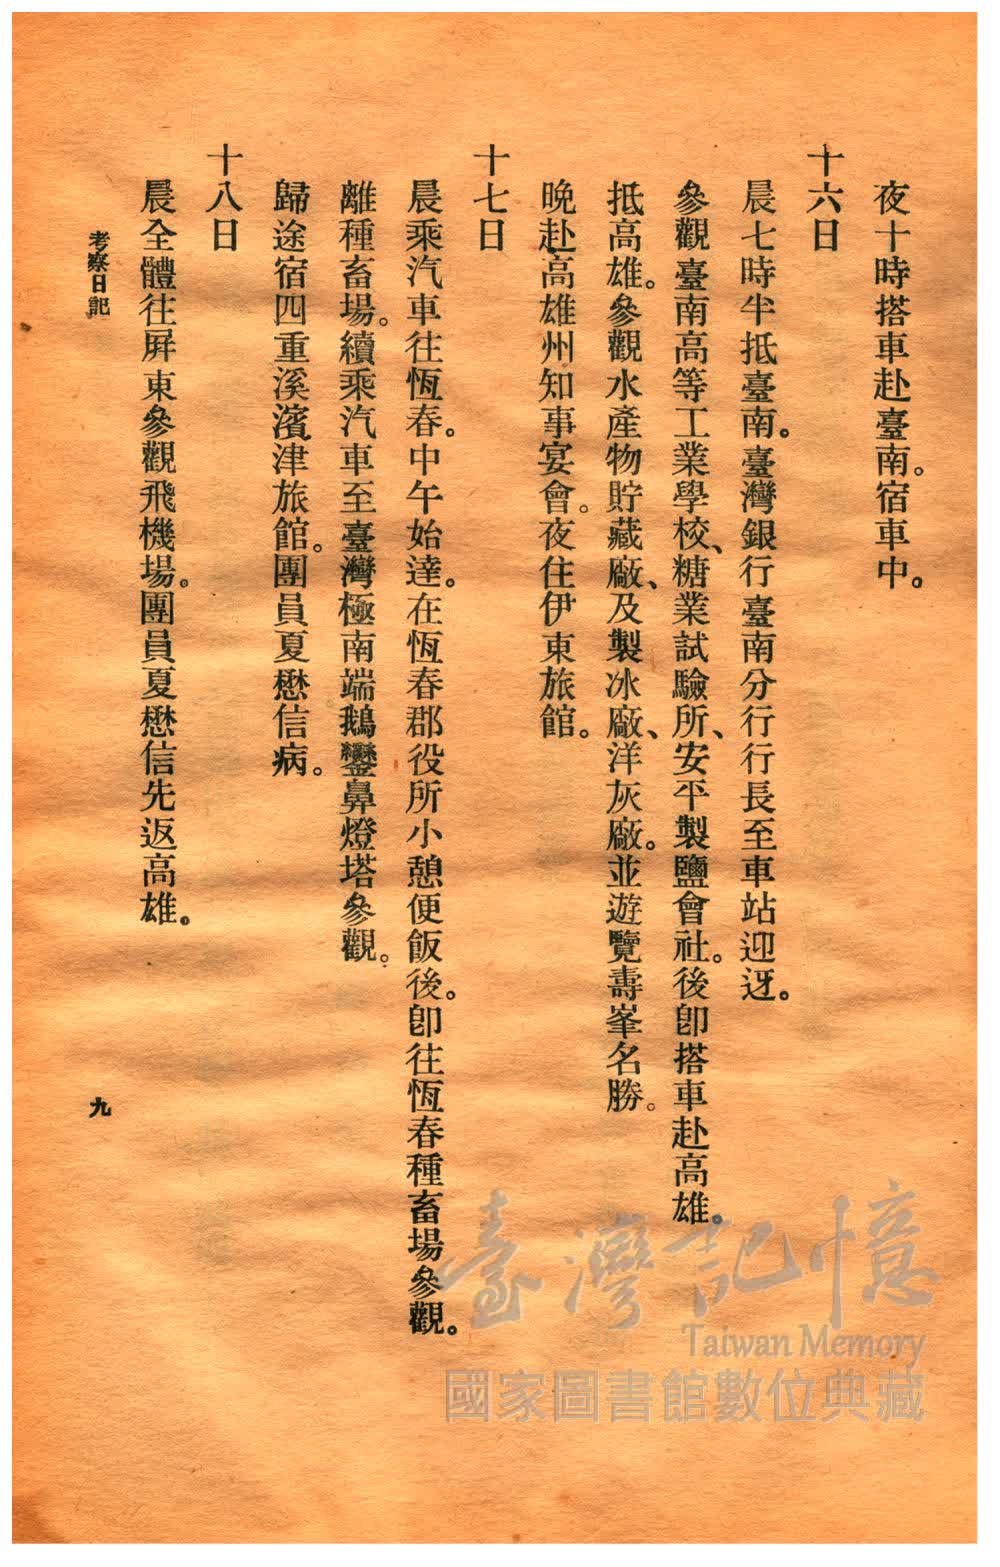 夜十時搭車赴臺南。宿車中。
十六日
晨七時半抵臺南。臺灣銀行臺南分行行長至車站迎迓。
參觀臺南高等工業學校、糖業試驗所、安平製鹽會社。後卽搭車赴高雄。
抵高雄。參觀水產物貯藏廠、及製冰廠、洋灰廠。並遊覽壽峯名勝。
晚赴高雄州知事宴會。夜住伊東旅館。
十七日
晨乘汽車往恆春。中午始達。在恆春郡役所小憩便飯後。卽往恆春種畜場參觀。
離種畜場。續乘汽車至臺灣極南端鵝鑾鼻燈塔參觀。
歸途宿四重溪濱津旅館。團員夏懋信病。
十八日
晨全體往屛東參觀飛機場。團員夏懋信先返高雄。
考察日記
九
臺灣記憶
Taiwan Memory
國家圖書館數位典藏